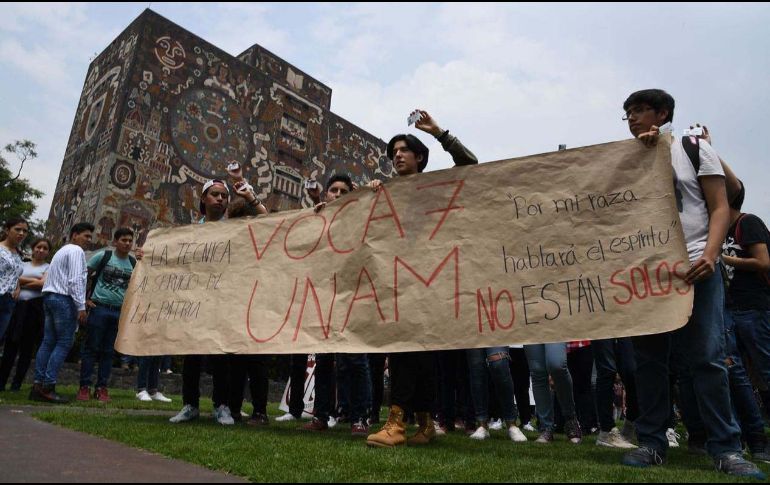 LA TÉCNICA
AL SERVICIO DE
LA PATRIA
VOCA 7
UNAM
"Por mi raza
hablará el espíritu"
NO ESTÁN SOLOS